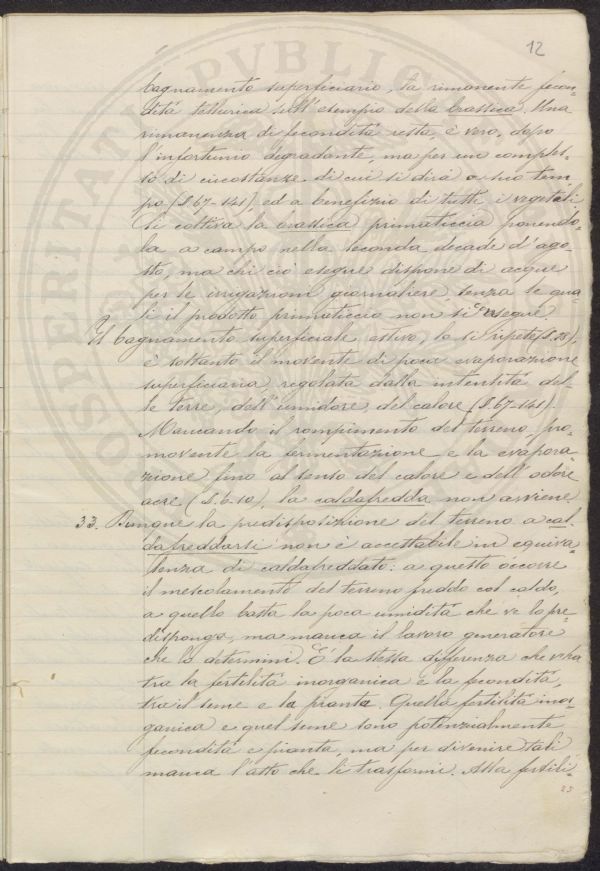 12
bagnamento superficiario, la rimanente fecon-
dità tellurica sull'esempio della brassica. Una
rimanenza di fecondità resta, è vero, dopo
l'infortunio degradante, ma per un comples-
so di circostanze di cui si dirà a suo tem-
po (§.67-141), ed a benefizio di tutti i vegetali.
Si coltiva la brassica primaticcia ponendo-
la a campo nella seconda decade d'ago-
sto, ma chi ciò esegue dispone di acque
per le irrigazioni giornaliere, senza le qua-
li il prodotto primaticcio non si esegue.
Il bagnamento superficiale estivo, lo si ripete (§.28),
è soltanto il movente di poca evaporazione
superficiaria, regolata dalla intensità del-
le terre, dell'umidore, del calore (§.67-141).
Mancando il rompimento del terreno, pro-
movente la fermentazione e la evapora-
zione fino al senso del calore e dell'odore
acre (§.6.10), la caldafredda non avviene
33. Dunque la predisposizione del terreno a cal-
dafreddarsi non è accettabile in equiva-
lenza di caldafreddato: a questo occorre
il mescolamento del terreno freddo col caldo,
a quello basta la poca umidità che ve lo pre-
disponga, ma manca il lavoro generatore
che lo determini. È la stessa differenza che v'ha
tra la fertilità inorganica e la fecondità,
tra il seme e la pianta. Quella fertilità inor-
ganica e quel seme sono potenzialmente
fecondità e pianta, ma per divenire tali
manca l'atto che li trasformi. Alla fertili-
23